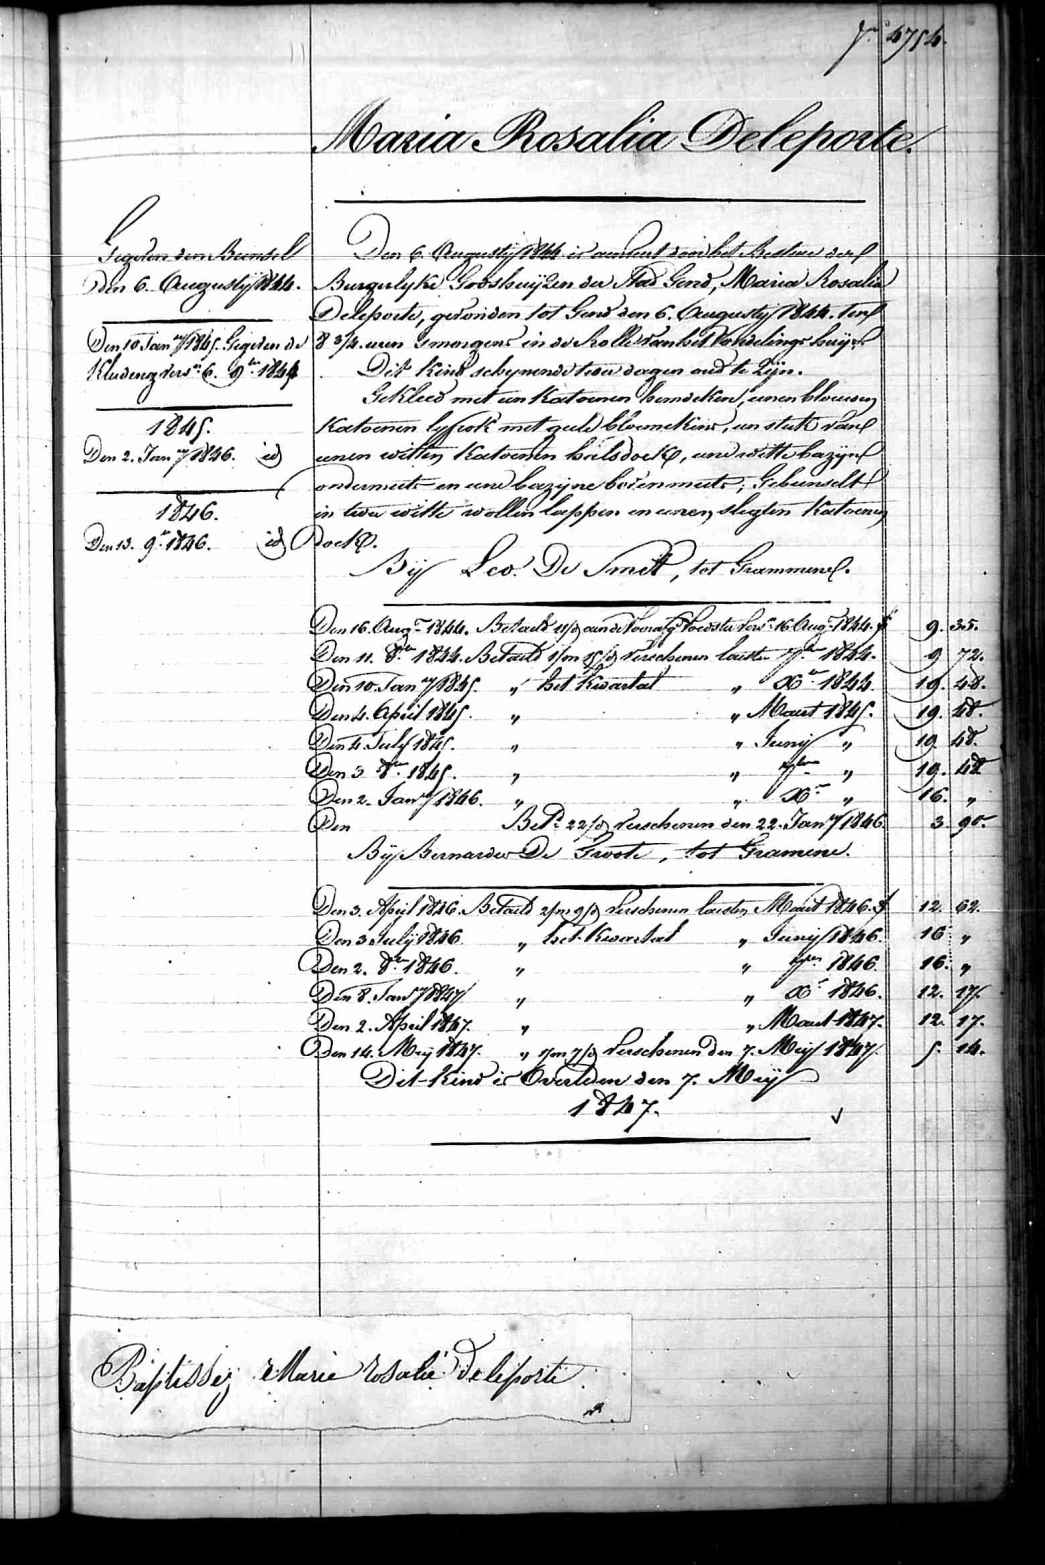 4754.
Maria Rosalia Deleporte.
Gegeven den Bunsel
den 6. Augustij 1844.
Den 10 Jany 1845. Gegeven de
Kleedeng vers. 6. 9ber 1844
1845.
Den 2. Jany 1846. id
1846.
Den 13. 9br 1846. id
Den 6. Augustij 1844 is door het Bestier der
Burgerlyke Godshuijzen der Stad Gend, Maria Rosalia
Deleporte, gevonden tot Gend den 6. Augustij 1844. ten
8 3/4 uren smorgens in de Rolle van het Vondelingshuijs
Dit kind schynende twee dagen oud te zijn.
Gekleed met een katoenen hemdeken, eenen blauwen
katoenen lyfrok met geele bloemekins, een stuk van
eenen witten katoenen halsdoek, eene witte bazyne
ondermuts en eene bazyne bovenmuts; Gebunselt
in twee witte wollen lappen en eenen slegten katoenen
doek.
Bij Leo. De Smet, tot Grammene.
Den 16. Augt. 1844. Betaeld 11/d aen de voorafge Voedster vers. 16. Aug. 1844. f 9. 35.
Den 11. 8ber 1844. Betaeld 1/m 15/d verschenen laesten 7ber 1844. 9 72.
Den 10. Jany 1845. " het Kwartael " Xber 1844. 19. 48.
Den 4. April 1845. " " Maert 1845. 19. 48.
Den 4 July 1845. " " Junij " 19 48.
Den 3. 8ber 1845. " " 7ber " 19. 48
Den 2. Jany 1846. " " Xr " 16. "
Den Betd. 22/d verschenen den 22. Jany 1846. 3. 90.
Bij Bernardus De Groote, tot Gramene.
Den 3. April 1846. Betaeld 2/m 9/d verschenen laesten Maert 1846. f 12. 62.
Den 3 Julij 1846. " het Kwartael " Junij 1846. 16 "
Den 2. 8ber 1846. " " 7ber 1846 16. "
Den 8. Jany 1847 " " Xr 1846. 12. 17.
Den 2. April 1847. " " Maert 1847. 12. 17.
Den 14. Meij 1847. " 1/m 7/d verschenen den 7. Meij 1847. 5. 14.
Dit kind is Overleden den 7. Meij
1847.
Marie rosalie deleporte